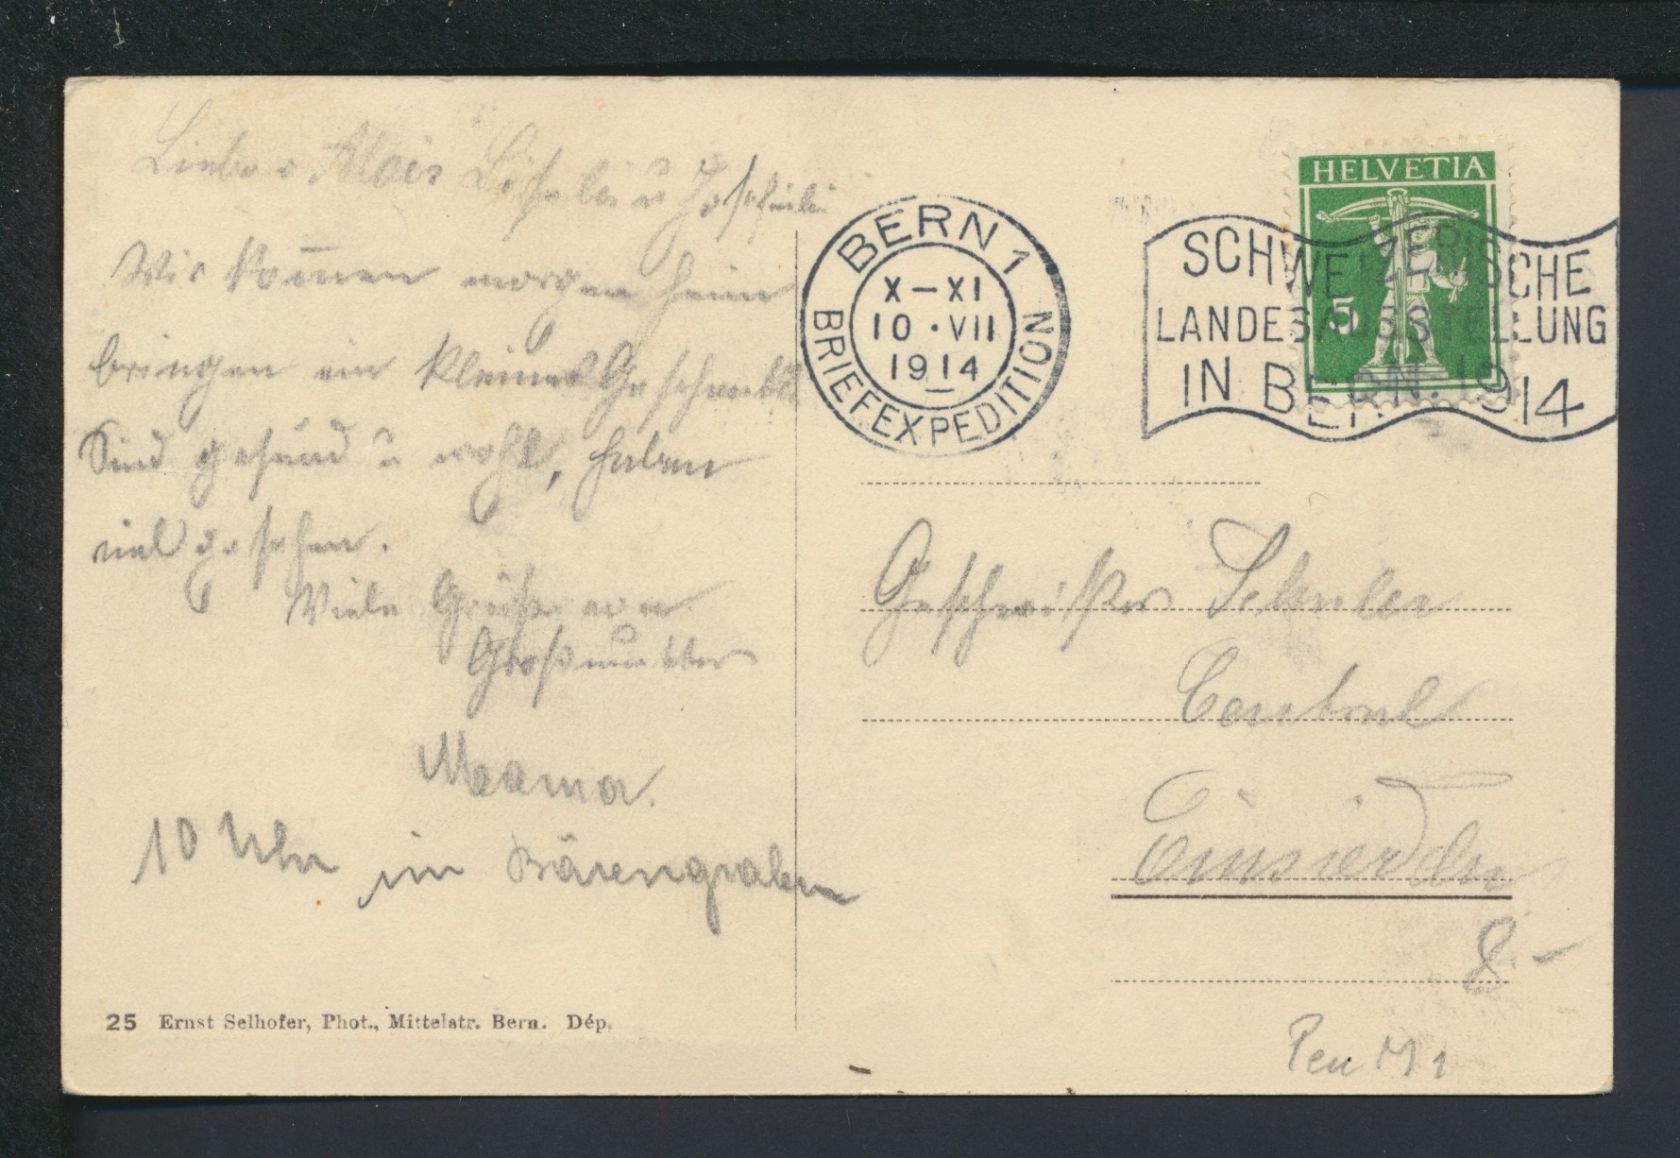 Lieber Alois Liseli u Josefeili
Wir kom̅en morgen heim
bringen ein kleines Geschenkli
Sind gesund u wohl, haben
viel gesehen.
Viele Grüße von
Großmutter
Maama.
10 Uhr im Bärengraben
25 Ernst Selhofer, Phot., Mittelstr. Bern. Dép.
BERN 1
X–XI
10·VII
1914
BRIEFEXPEDITION
HELVETIA
5
SCHWEIZERISCHE
LANDESAUSSTELLUNG
IN BERN. 1914
Geschwister Schuler
Central
Einsiedeln
8.–